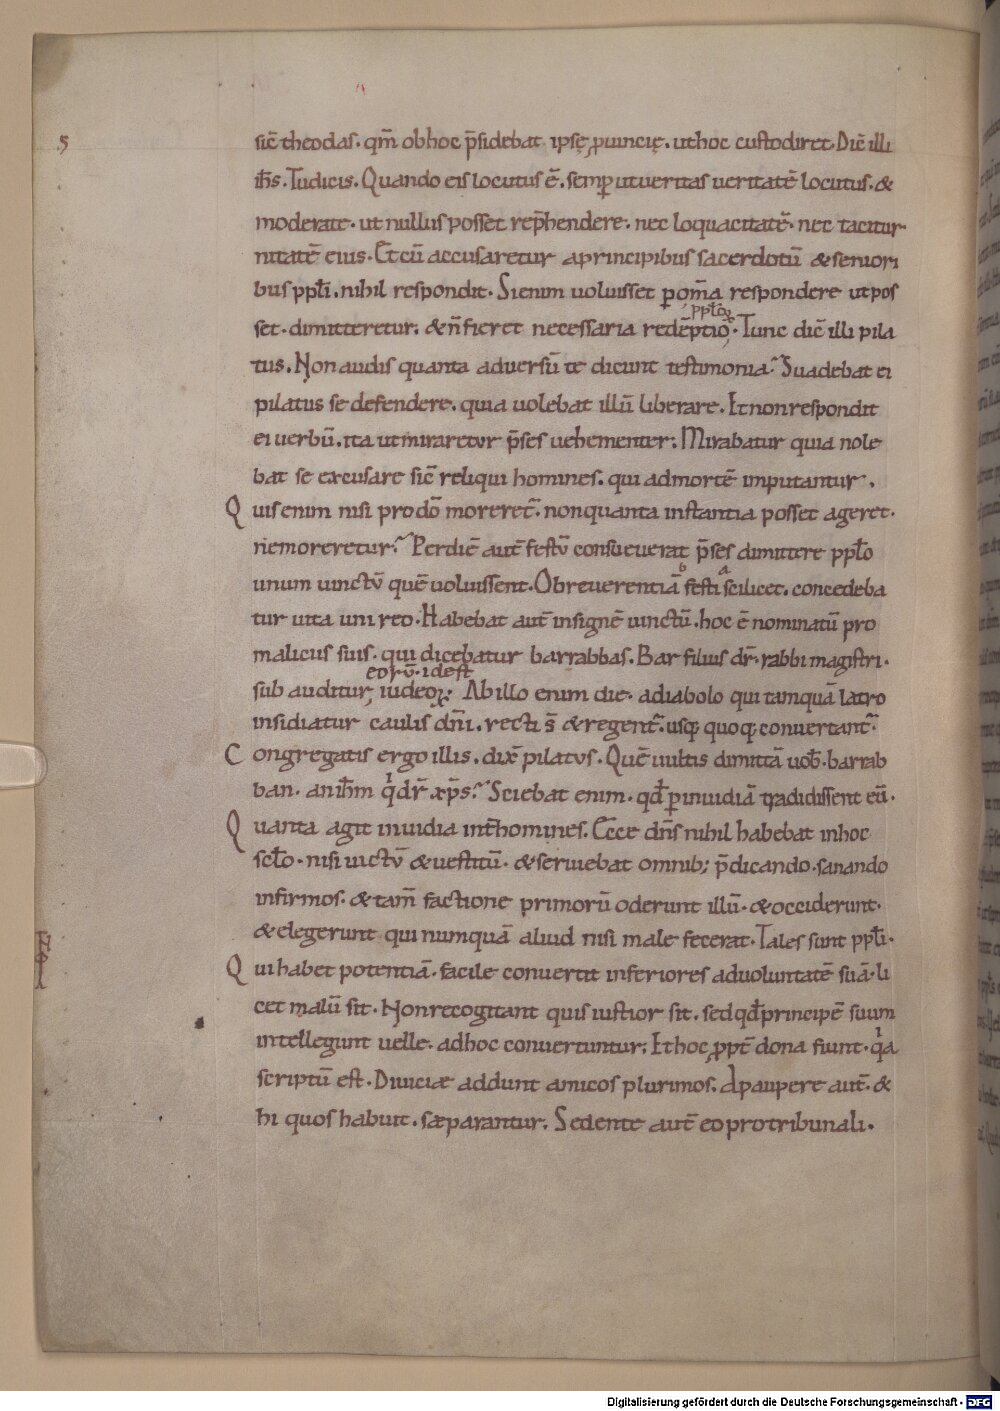 5
sic̄ theodas. qm̄ ob hoc p̄sidebat ipsę ꝓuincię. ut hoc custodiret. Dic̄ illi
ih̄s. Iudicis. Quando eis locutus ē. semꝑ ut ueritas ueritatē locutus. &
moderate. ut nullus posset rep̄hendere. nec loquacitatē. nec tacitur
nitatē eius. Et cū accusaretur a principibus sacerdotū & seniori
bus ppl̄i. nihil respondit. Si enim uoluisset ꝑ om̄a respondere ut pos
ppl̄oꝝ
set. dimitteretur. & n̄ fieret necessaria redēptio. Tunc dic̄ illi pila
tus. Non audis quanta aduersū te dicunt testimonia? Suadebat ei
pilatus se defendere. quia uolebat illū liberare. Et non respondit
ei uerbū. ita ut miraretur p̄ses uehementer. Mirabatur quia nole
bat se excusare sic̄ reliqui homines. qui ad mortē imputantur.
Quis enim nisi pro dō moreret̄. non quanta instantia posset ageret.
ne moreretur? Per diē aut̄ festū consueuerat p̄ses dimittere ppl̄o
b a
unum uinctū quē uoluissent. Ob reuerentiā festi scilicet. concedeba
tur uita uni reo. Habebat aut̄ insignē uinctū. hoc ē nominatū pro
malicus suis. qui dicebatur barrabbas. Bar filius dr̄. rabbi magistri.
eorū. idest
sub auditur, iudeoꝝ. Ab illo enim die. a diabolo qui tamquā latro
insidiatur caulis dn̄i. recti s̄ & regent̄. usq; quoq; conuertant̄.
Congregatis ergo illis. dix̄ pilatus. Quē uultis dimittā uob̄. barrab
ban. an ih̄m q̇ dr̄ xp̄s? Sciebat enim. qd̄ ꝑ inuidiā tradidissent eū.
Quanta agit inuidia int̄ homines. Ecce dn̄s nihil habebat in hoc
scl̄o. nisi uictū & uestitū. & seruiebat omnib; p̄dicando. sanando
infirmos. & tam̄ factione primorū oderunt illū. & occiderunt.
& elegerunt qui numquā aliud nisi male fecerat. Tales sunt ppl̄i.
Qui habet potentiā. facile conuertit inferiores ad uoluntatē suā. li
cet malū sit. Non recogitant quis iustior sit. sed qd̄ principē suum
intellegunt uelle. ad hoc conuertuntur. Et hoc ꝓpt̄ dona fiunt. q̇a
scriptū est. Diuiciæ addunt amicos plurimos. A paupere aut̄. &
hi quos habuit. sæparantur. Sedente aut̄ eo pro tribunali.
Digitalisierung gefördert durch die Deutsche Forschungsgemeinschaft - DFG